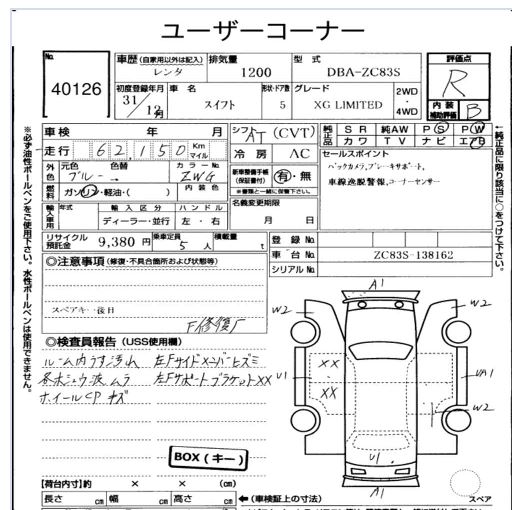 ユーザーコーナー
No.
40126
車歴 (自家用以外は記入)
レンタ
排気量
1200
型式
DBA-ZC83S
評価点
R
初度登録年月
31年 12月
車名
スイフト
形状・ドア数
5
グレード
XG LIMITED
2WD・4WD
内装補助評価
B
※必ず油性ボールペンをご使用下さい。水性ボールペンは使用できません。
←純正品に限り該当に○をつけて下さい。
車検 年 月
走行 62,150 Km マイル
シフト AT (CVT)
冷房 AC
純正品
SR 純AW PS PW
カワ TV ナビ エアB
セールスポイント
バックカメラ、ブレーキサポート、
車線逸脱警報、コーナーセンサー
外色
元色
ブルー →
色替
カラーNo.
ZWG
燃料
ガソリン・軽油・( )
内装色
新車整備手帳(保証書付) 有・無
※書類と一緒に保管下さい。
輸入車用
年式
輸入区分
ディーラー・並行
ハンドル
左・右
名義変更期限
月 日
リサイクル預託金
9,380 円
乗車定員
5 人
積載量
t
登録No.
車台No. ZC83S-138162
シリアルNo.
◎注意事項 (修復・不具合箇所および状態等)
スペアキー後日
F修復厂
◎検査員報告 (USS使用欄)
ルーム内うす汚れ 左Fサイドメンバーヒズミ
各ボシュウ波ムラ 左Fサポートブラケット××
ホイールCPキズ
BOX (キー)
A1
W2
W2
××
××
U1
UA1
W2
U1
A1
スペア
【荷台内寸】約 × × (cm)
長さ cm 幅 cm 高さ cm
←(車検証上の寸法)